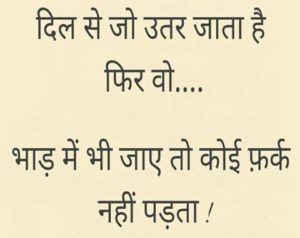 दिल से जो उतर जाता है
फिर वो....
भाड़ में भी जाए तो कोई फ़र्क
नहीं पड़ता !